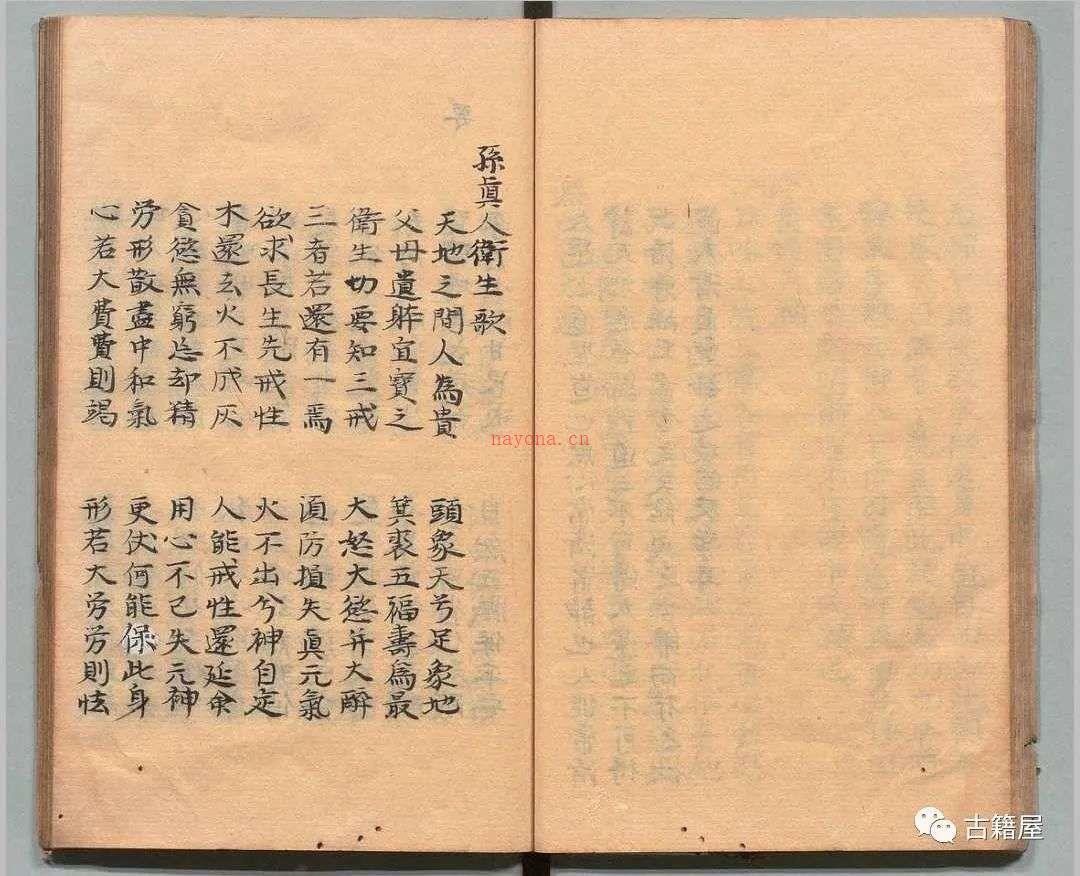 孫眞人衛生歌
天地之間人為貴　頭象天兮足象地
父母遺軀宜寶之　箕裘五福壽為最
衛生切要知三戒　大怒大慾并大醉
三者若還有一焉　須防損失眞元氣
欲求長生先戒性　火不出兮神自定
木還去火不成灰　人能戒性還延命
貪慾無窮忘却精　用心不已失元神
勞形散盡中和氣　更仗何能保此身
心若大費費則竭　形若大勞勞則怯
nayona.cn
古籍屋